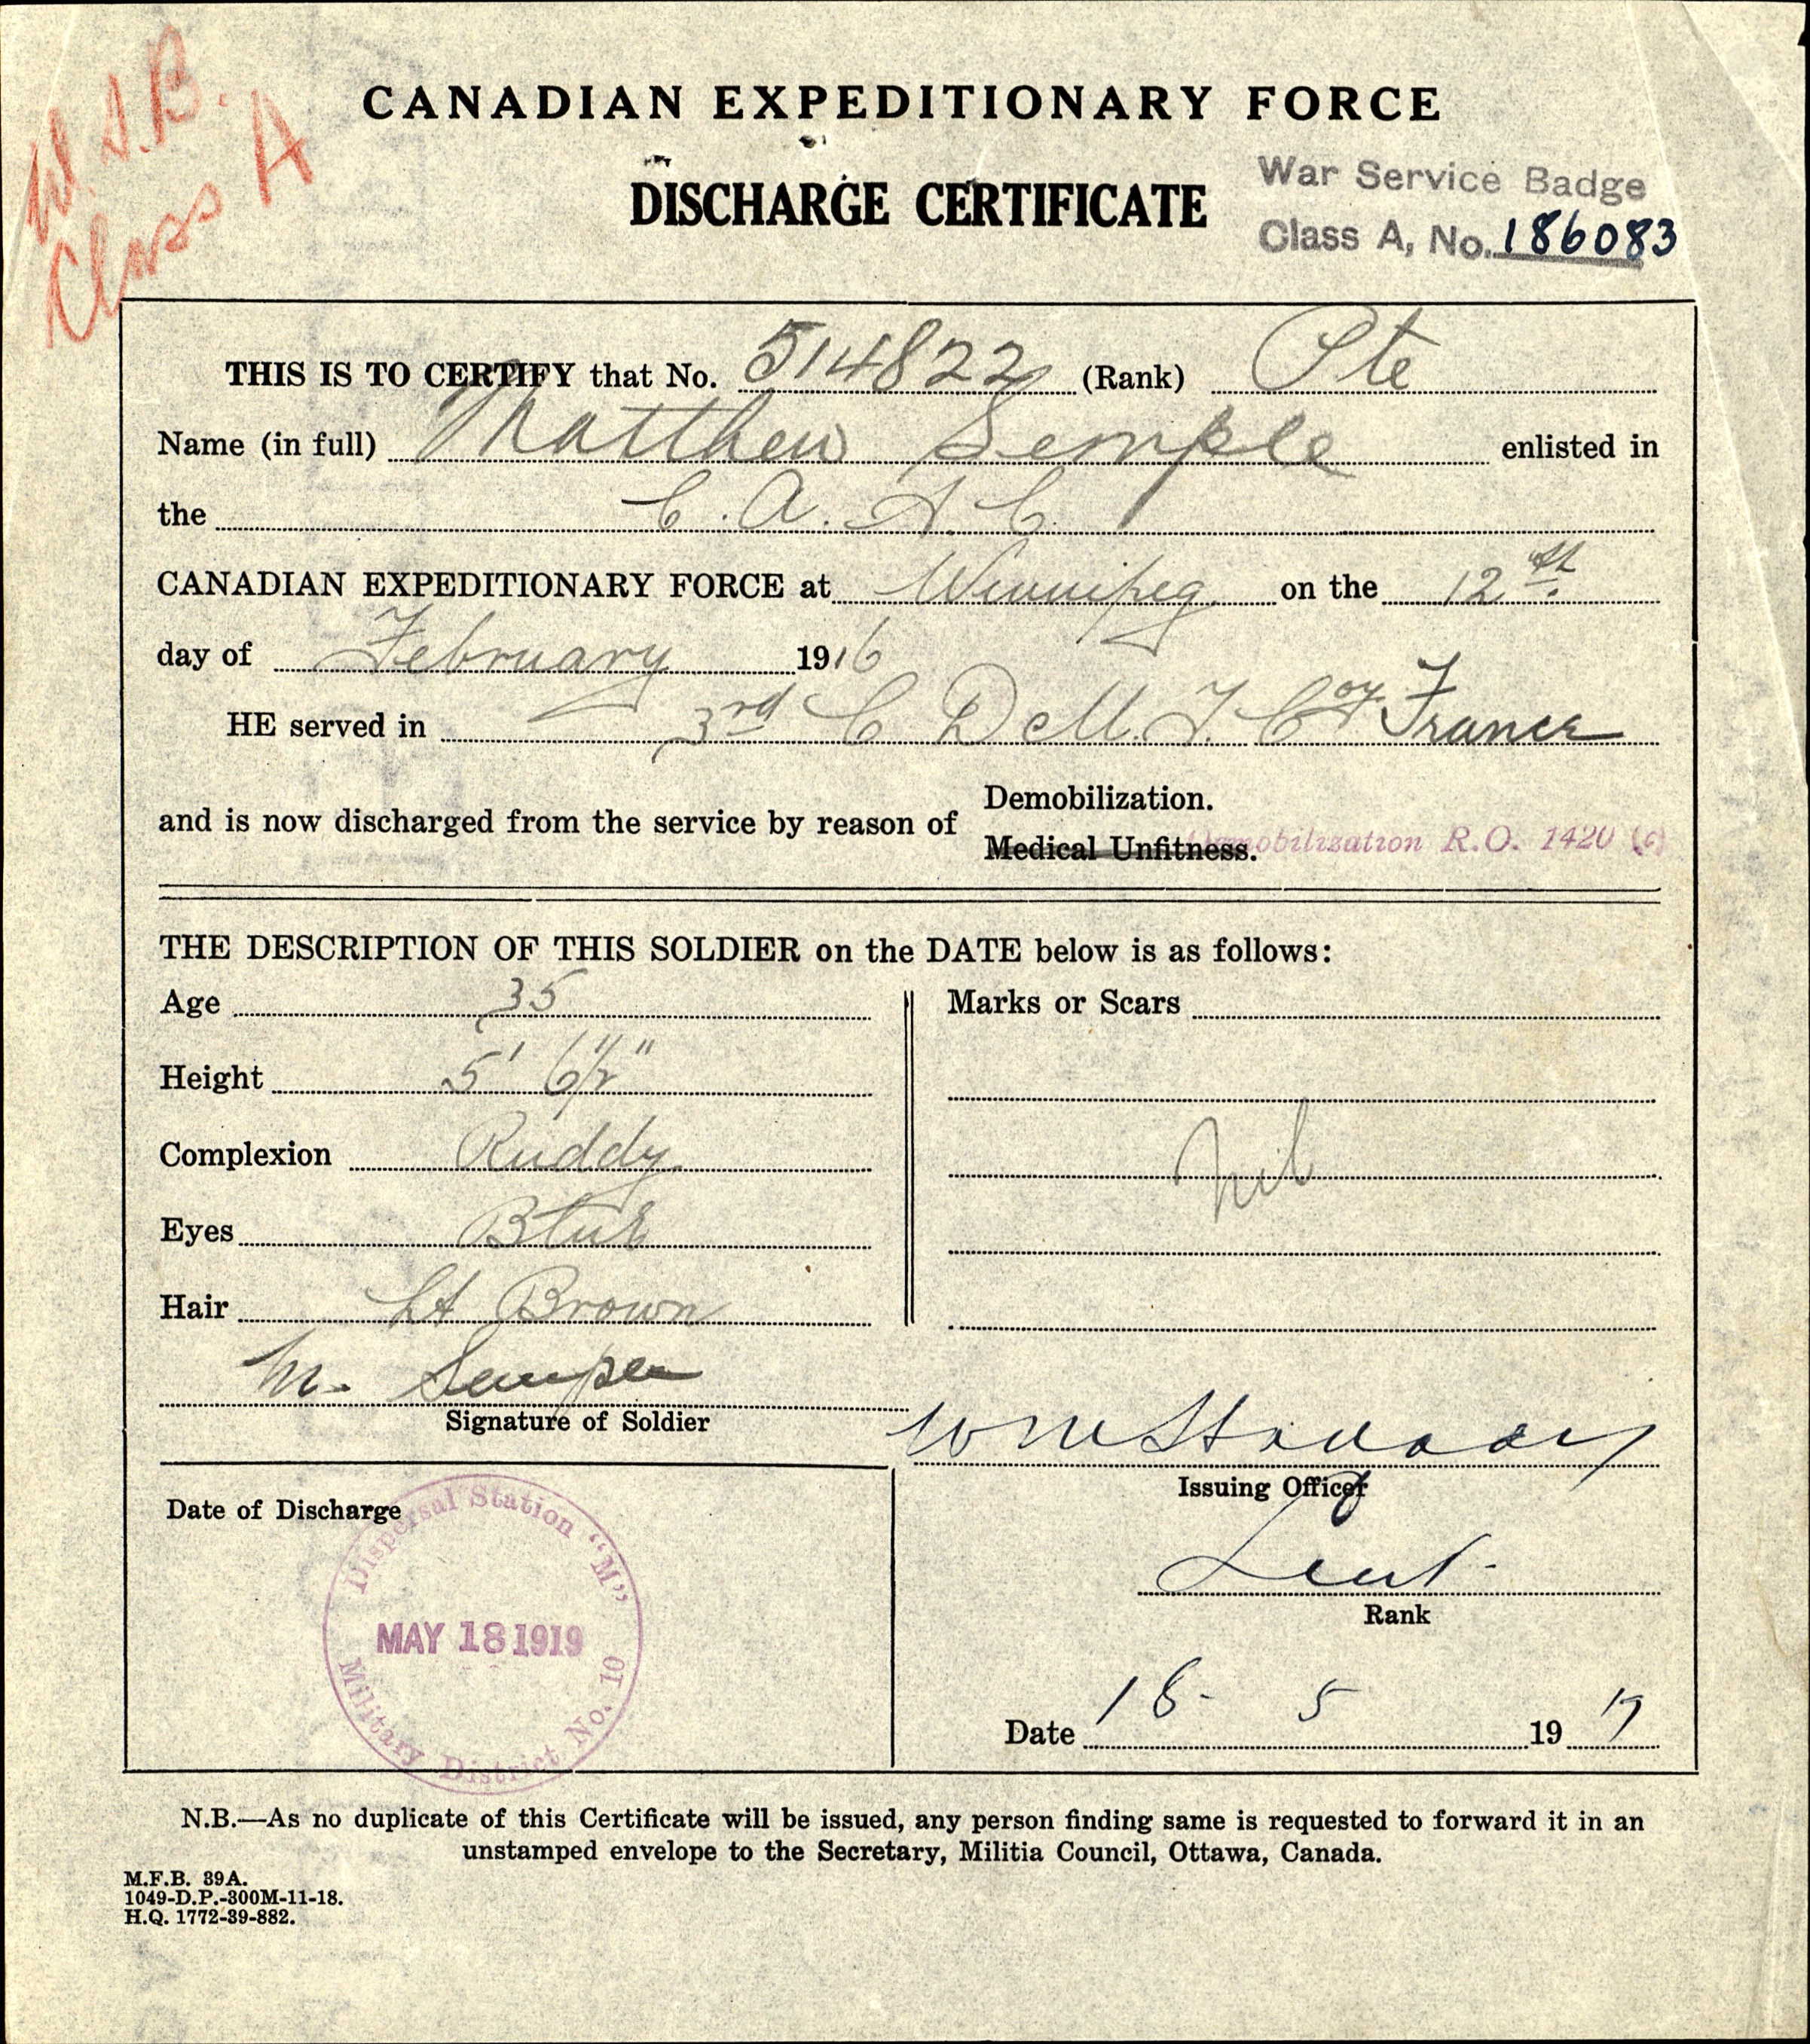 W.S.B.
Class A
CANADIAN EXPEDITIONARY FORCE
DISCHARGE CERTIFICATE
War Service Badge
Class A, No. 186083
THIS IS TO CERTIFY that No. 514822 (Rank) Pte
Name (in full) Matthew Semple enlisted in
the C. A. S. C.
CANADIAN EXPEDITIONARY FORCE at Winnipeg on the 12th
day of February 1916
HE served in 3rd C D M. T. Coy France
and is now discharged from the service by reason of
Demobilization.
Medical Unfitness. Demobilization R.O. 1420 (c)
THE DESCRIPTION OF THIS SOLDIER on the DATE below is as follows:
Age 35
Height 5' 6 1/2"
Complexion Ruddy
Eyes Blue
Hair Lt Brown
Marks or Scars
nil
M. Semple
Signature of Soldier
Issuing Officer
Lieut.
Rank
Date of Discharge
Dispersal Station "M"
MAY 18 1919
Military District No. 10
Date 18- 5 1919
N.B.—As no duplicate of this Certificate will be issued, any person finding same is requested to forward it in an
unstamped envelope to the Secretary, Militia Council, Ottawa, Canada.
M.F.B. 39A.
1049-D.P.-300M-11-18.
H.Q. 1772-39-882.